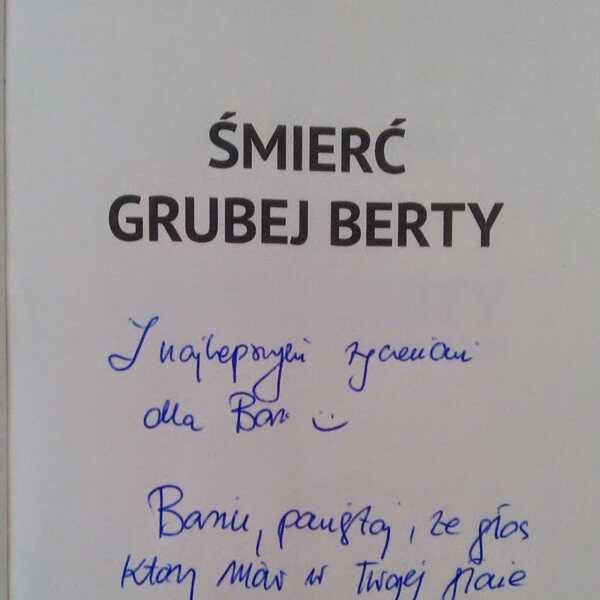 ŚMIERĆ
GRUBEJ BERTY
Z najlepszymi życzeniami
dla Basi
Basiu, pamiętaj, że głos
który
w Twojej